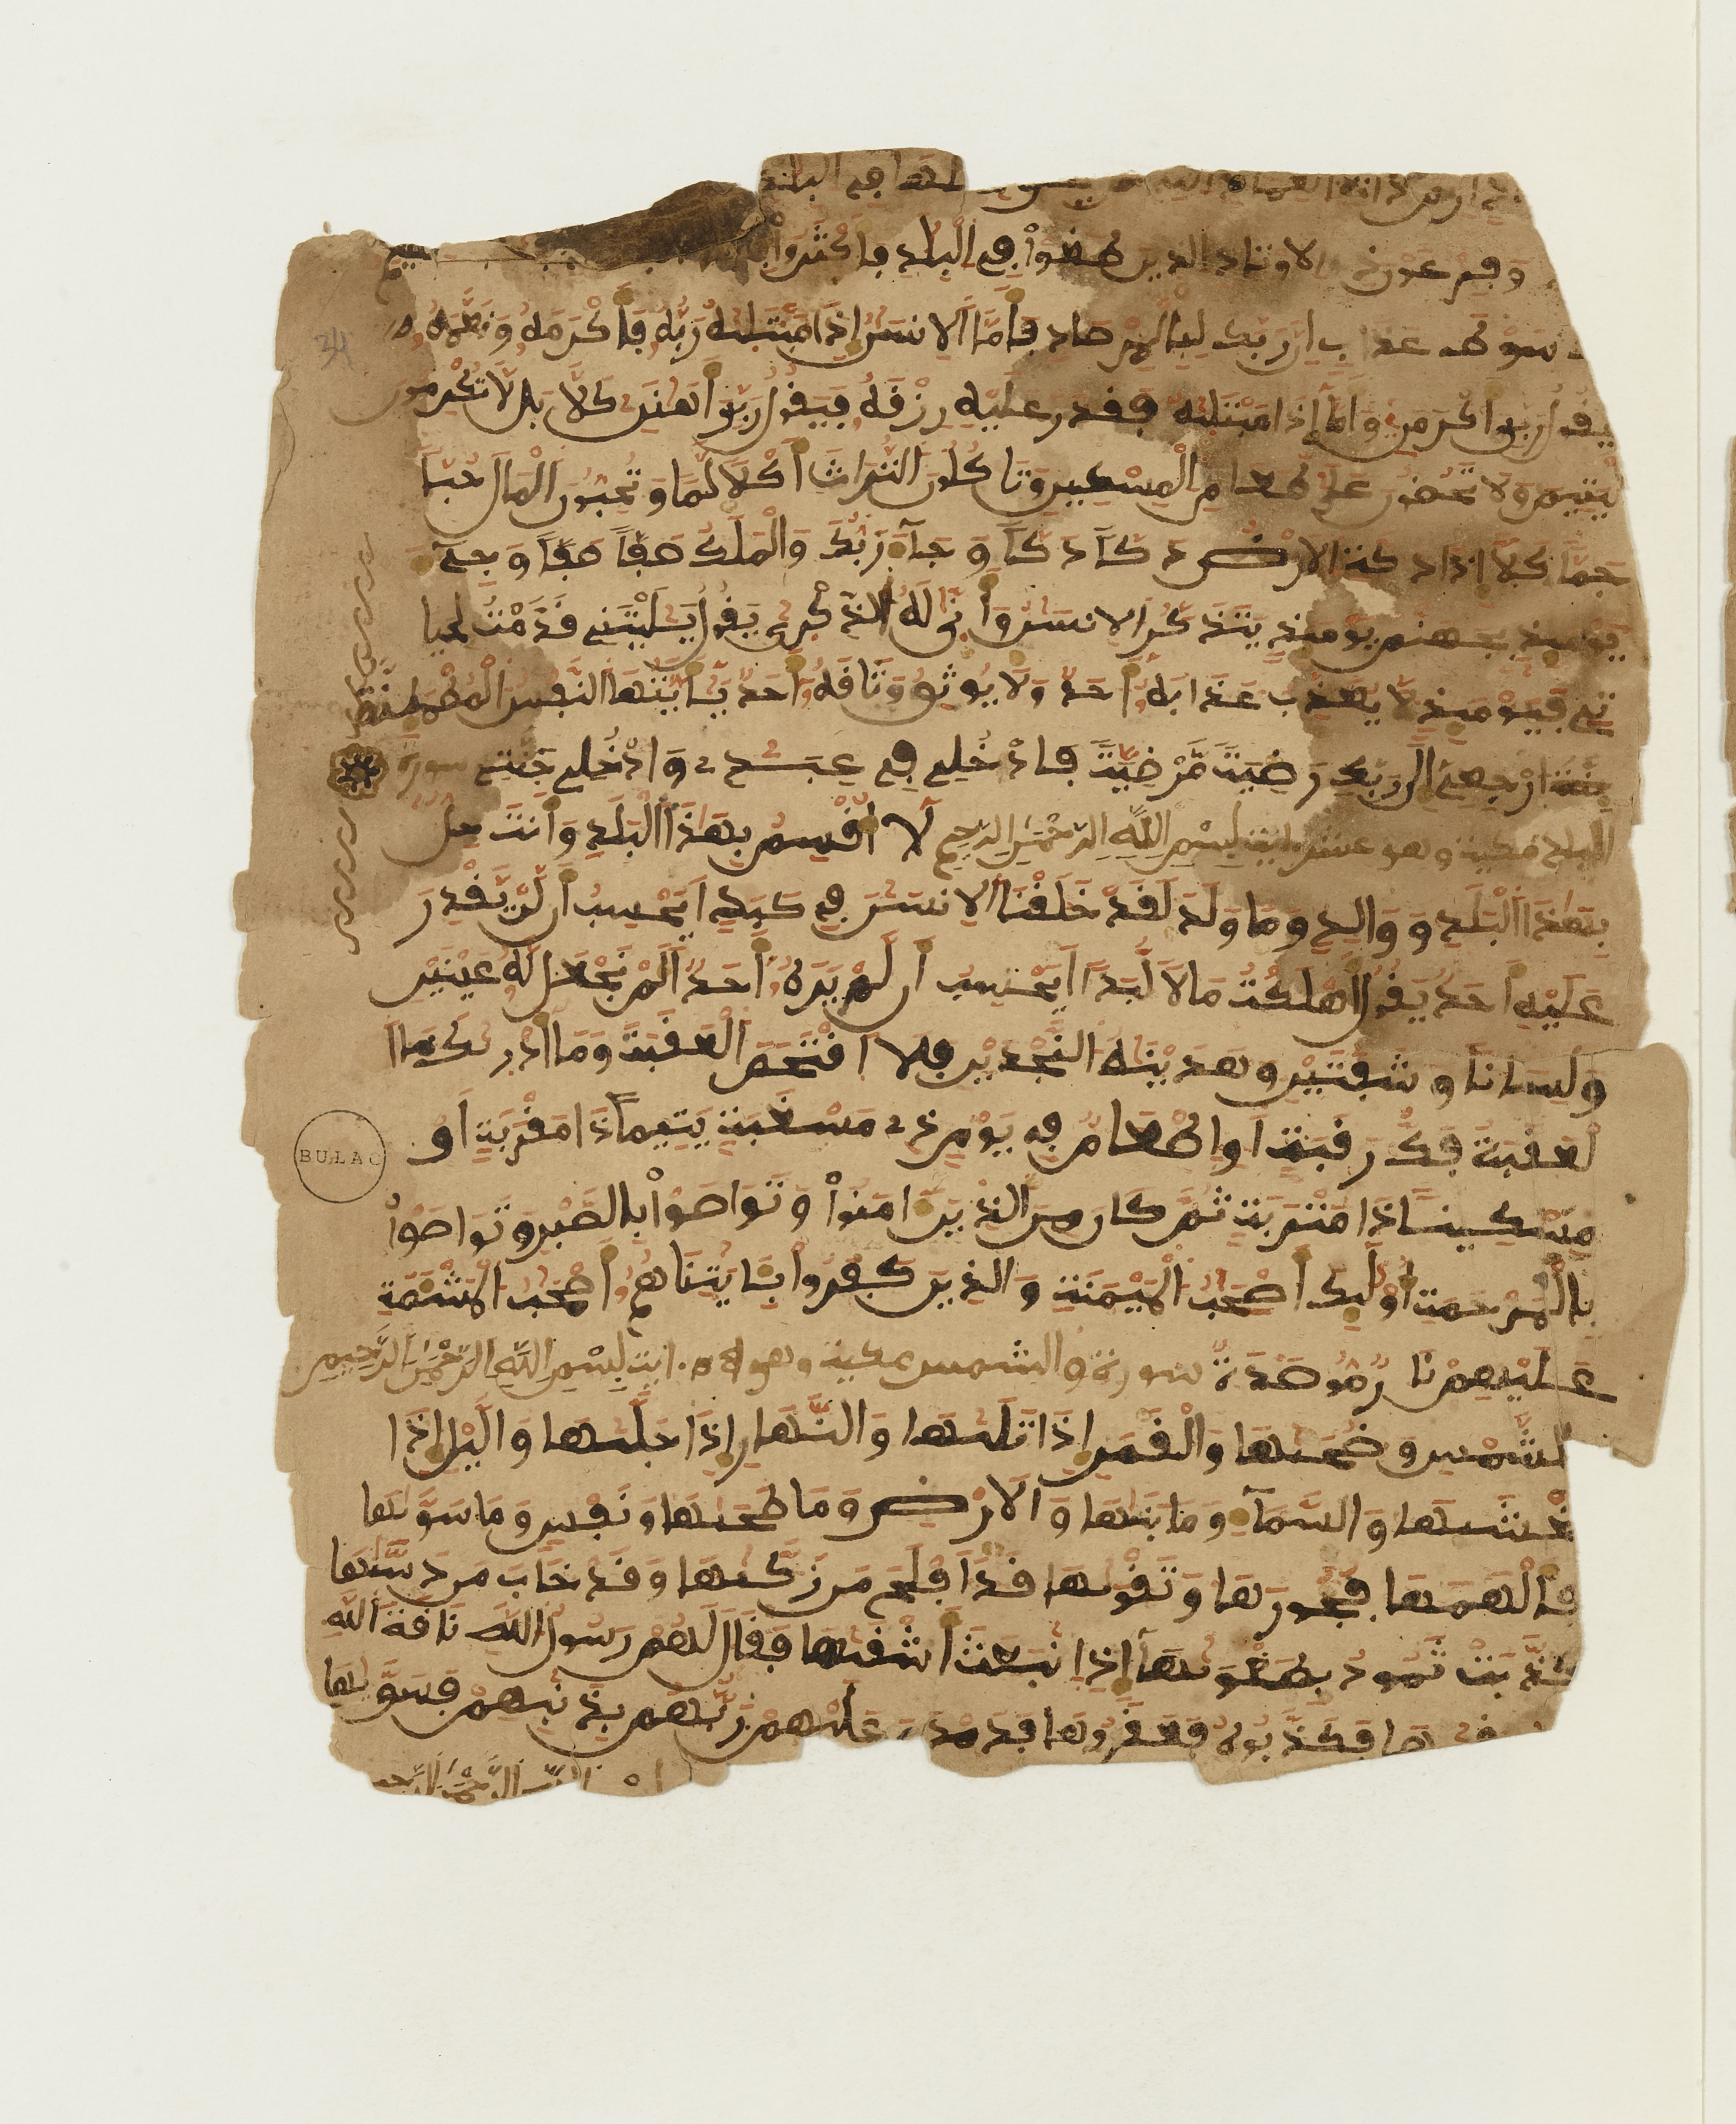 في البلد
وفرعون الاوتاد الذين طغوا في البلد فاكثروا
سوط عذاب ان ربك لبالمرصاد فاما الانسن اذا ما ابتليه ربه فاكرمه ونعمه
فيقول ربي اكرمن واما اذا ما ابتليه فقدر عليه رزقه فيقول ربي اهنن كلا بل لا تكرمون
اليتيم ولا تحضون على طعام المسكين وتاكلون التراث اكلا لما وتحبون المال حبا
جما كلا اذا دكت الارض دكا دكا وجآ ربك والملك صفا صفا وجيء
يوميذ بجهنم يوميذ يتذكر الانسن وانى له الذكرى يقول يليتني قدمت لحيا
تي فيوميذ لا يعذب عذابه احد ولا يوثق وثاقه احد يايتها النفس المطمئنة
ارجعي الى ربك رضية مرضية فادخلي في عبدي وادخلي جنتي سورة
البلد مكية وهو عشرون اية بسم الله الرحمن الرحيم لا اقسم بهذا البلد وانت حل
بهذا البلد ووالد وما ولد لقد خلقنا الانسن في كبد ايحسب ان لن يقدر
عليه احد يقول اهلكت مالا لبدا ايحسب ان لم يره احد الم نجعل له عينين
ولسانا وشفتين وهدينه النجدين فلا اقتحم العقبة وما ادريك ما ا
لعقبة فك رقبة او اطعام في يوم ذي مسغبة يتيما ذا مقربة او
مسكينا ذا متربة ثم كان من الذين امنوا وتواصوا بالصبر وتواصوا
بالمرحمة اوليك اصحب الميمنة والذين كفروا بايتنا هم اصحب المشئمة
عليهم نار موصدة سورة والشمس مكية وهو اية بسم الله الرحمن الرحيم
والشمس وضحيها والقمر اذا تليها والنهار اذا جليها واليل اذا
يغشيها والسمآ وما بنيها والارض وما طحيها ونفس وما سويها
فالهمها فجورها وتقويها قد افلح من زكيها وقد خاب من دسيها
كذبت ثمود بطغويها اذ انبعث اشقيها فقال لهم رسول الله ناقة الله
وسقيها فكذبوه فعقروها فدمدم عليهم ربهم بذنبهم فسويها
الله الرحمن الرحيم
34
BULAC